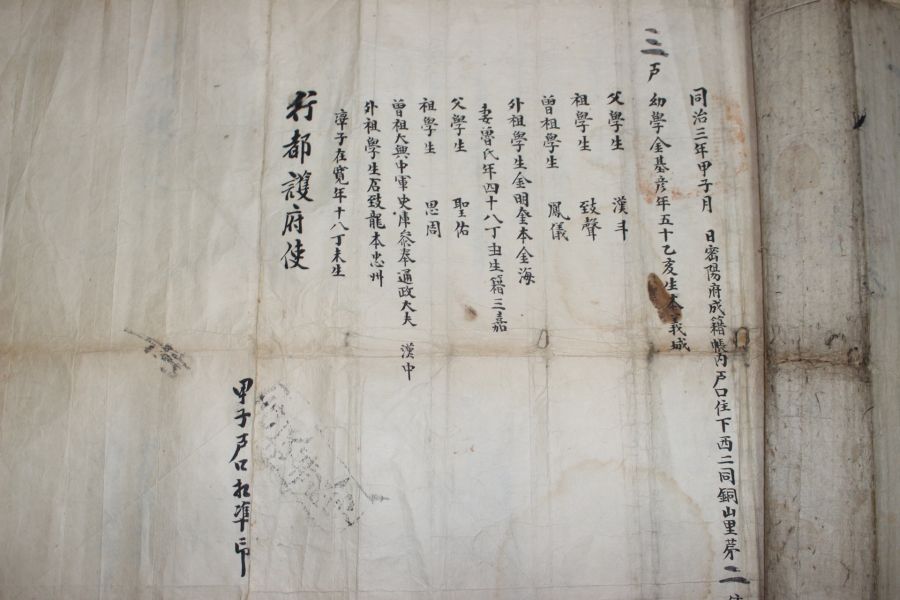 同治三年甲子月 日密陽府成籍帳內戶口住下西二同銅山里第二
三戶 幼學金基彦年五十乙亥生本義城
父學生 漢斗
祖學生 致聲
曾祖學生 鳳儀
外祖學生金明奎本金海
妻曺氏年四十八丁丑生籍三嘉
父學生 聖佑
祖學生 思周
曾祖大興中軍史庫叅奉通政大夫 漢中
外祖學生石致龍本忠州
率子在寬年十八丁未生
行都護府使
甲子戶口相準印